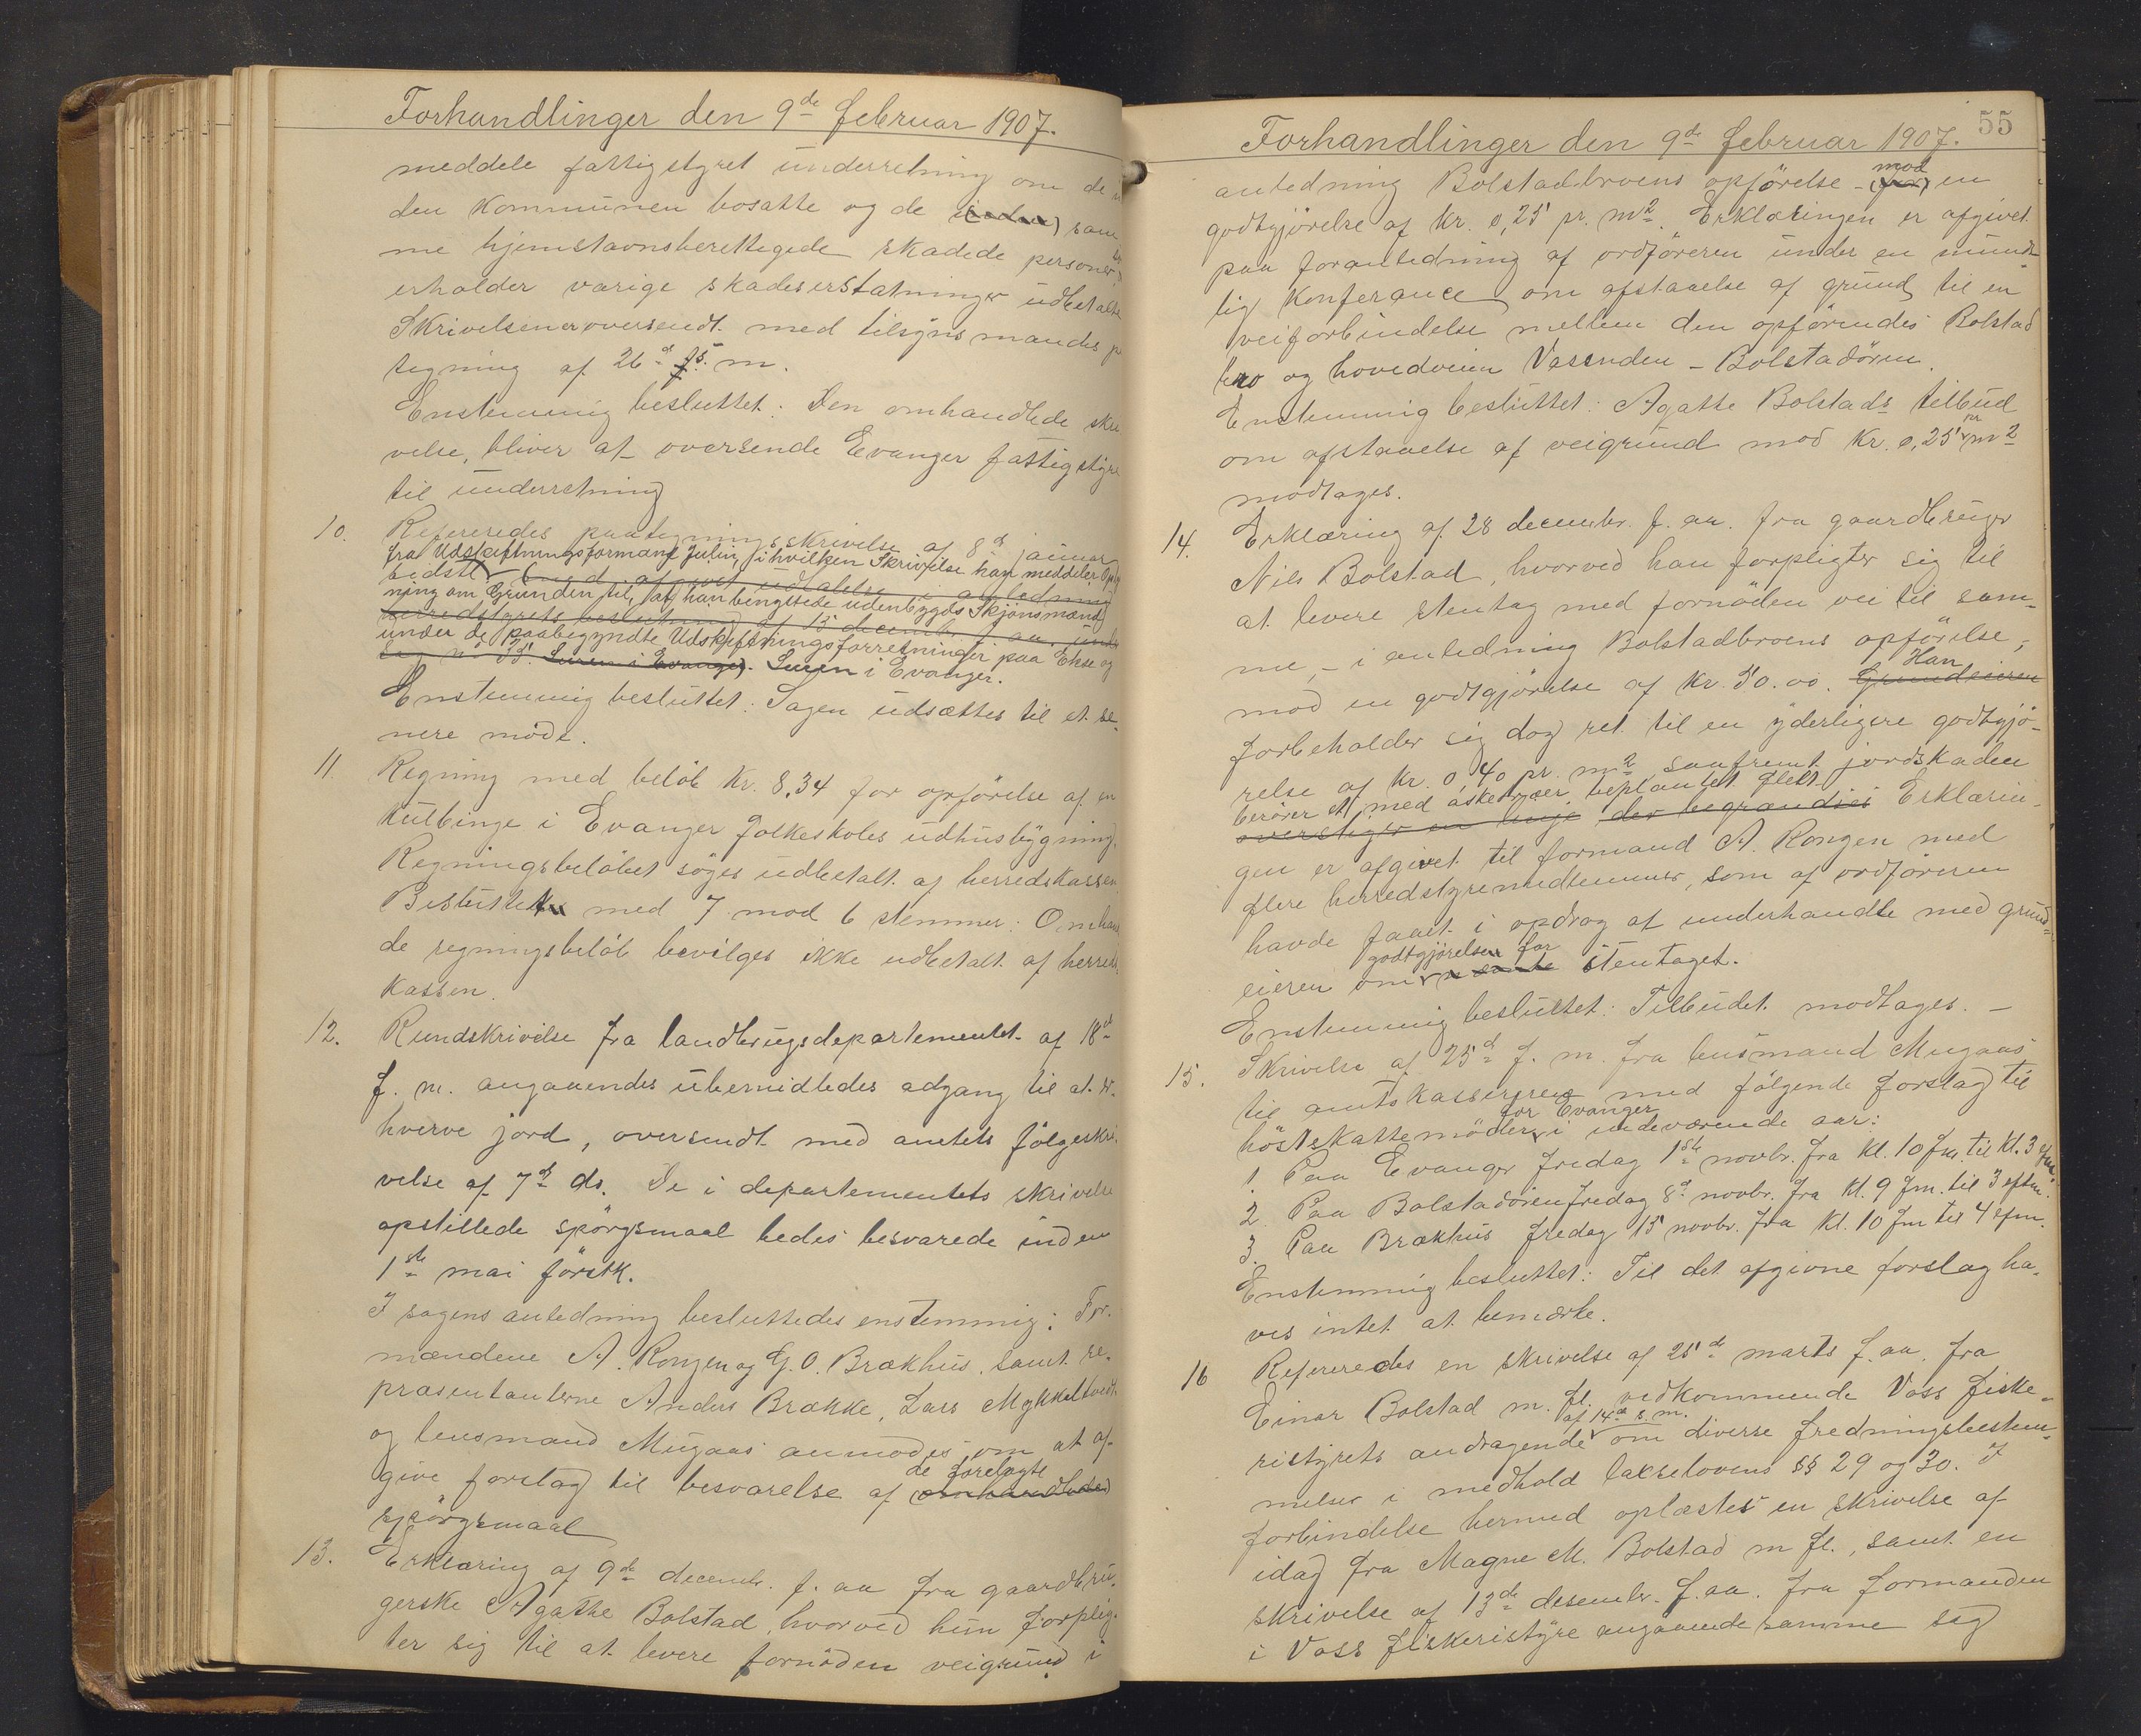 Forhandlinger den 9de februar 1907.
meddele fattigstyret underretning om de i
den kommunen bosatte og de (inden) sam
me hjemstavnsberettigede skadede personer,
erholder varige skadeserstatninger udbetalte
Skrivelsen er oversendt med tilsynsmandes p
tegning af 26d f. m.
Enstemmig besluttet: Den omhandlede skri
velse, bliver at oversende Evanger fattigstyre
til underretning
10. Refereredes paategningsskrivelse af 8d januar
fra Udskiftningsformand Juliu, i hvilken Skrivelse han meddeler Oply
ning om Grunden til, at han benyttede udenbygds Skjønsmænd
herredstyrets beslutning af 15 decembr. f. aa.
under de paabegyndte Udskiftningsforretninger paa Ekse og
Suren i Evanger). Suren i Evanger.
Enstemmig besluttet: Sagen udsættes til et se-
nere möde.
11. Regning med beløb kr. 8,34 for opførelse af en
kulbinge i Evanger folkeskoles udhusbygning.
Regningsbeløbet søges udbetalt af herredskassen
Besluttet med 7 mod 6 stemmer: Omhan
de regningsbeløb bevilges ikke udbetalt af herreds
kassen.
12. Rundskrivelse fra landbrugsdepartementet af 18d
f. m. angaaendes ubemidledes adgang til at er-
hverve jord, oversendt med amtets følgeskri
velse af 7d ds. De i departementets skrivelse
opstillede spörgsmaal bedes besvarede inden
1ste mai förstk.
I sagens anledning besluttedes enstemmig: For-
mændene A. Rongen og G. O. Brækhus, samt re-
præsentanterne Anders Brække, Lars Mykkeltvedt
og lensmand Mugaas anmodes om at af-
give forslag til besvarelse af de forelagte (omhandlede)
spörgsmaal
13. Erklæring af 9de decembr. f. aa fra gaardbru-
gerske Agathe Bolstad, hvorved hun forplig-
ter sig til at levere fornöden veigrund i
55
Forhandlinger den 9de februar 1907.
anledning Bolstadbroens opförelse - mod (for) en
godtgjörelse af kr. 0,25 pr. m2. Erklæringen er afgivet
paa foranledning af ordföreren under en mundt
lig konferance om afstaaelse af grund til en
veiforbindelse mellem den opförendes Bolstad
bro og hovedveien Vassenden - Bolstadören.
Enstemmig besluttet: Agatte Bolstads tilbud
om afstaaelse af veigrund mod kr. 0,25 pr m2
modtages.
14. Erklæring af 28 decembr. f. aa. fra gaardbruger
Nils Bolstad, hvorved han forpligter sig til
at levere stentag med fornöden vei til sam-
me, - i anledning Bolstadbroens opförelse,
mod en godtgjörelse af kr. 50.00. Han Grundeieren
forbeholder sig dog ret til en yderligere godtgjö-
relse af kr. 0,40 pr. m2, saafremt jordskaden
berörer et med asketræer beplantet flekt.
overstiger en linje der begrændses Erklærin-
gen er afgivet til formand A. Rongen med
flere herredstyremedlemmer, som af ordföreren
havde faaet i opdrag at underhandle med grund-
eieren om godtgjörelsen for nævnte stentaget.
Enstemmig besluttet: Tilbudet modtages. -
15. Skrivelse af 25d f. m. fra lensmand Mugaas
til amtskassereren med følgende forslag til
höstskattemöder for Evanger i indeværende aar:
1. Paa Evanger fredag 1ste novbr. fra kl. 10 fm. til kl. 3 efm.
2. Paa Bolstadören fredag 8d novbr. fra kl. 9 fm. til 3 eftm.
3. Paa Brækhus fredag 15 novbr. fra kl. 10 fm til 4 efm.
Enstemmig besluttet: Til det afgivne forslag ha-
ves intet at bemærke.
16 Refereredes en skrivelse af 25de marts f. aa. fra
Einar Bolstad m. fl. vedkommende Voss fiske-
ristyrets andragende af 14de s. m. om diverse fredningsbestem-
melser i medhold lakselovens §§ 29 og 30. I
forbindelse hermed oplæstes en skrivelse af
idag fra Magne M. Bolstad m fl., samt en
skrivelse af 13de desembr. f. aa. fra formanden
i Voss fiskeristyre angaaende samme sag